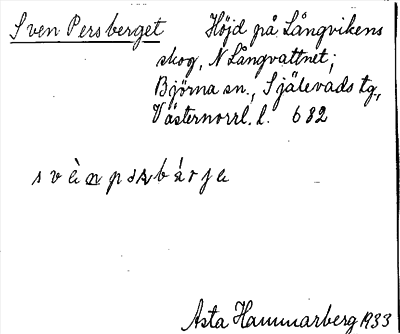 Sven Persberget Höjd på Långvikens
skog, N Långvattnet;
Björna sn., Själevads tg.,
Västernorrl. l. 682
Asta Hammarberg 1933